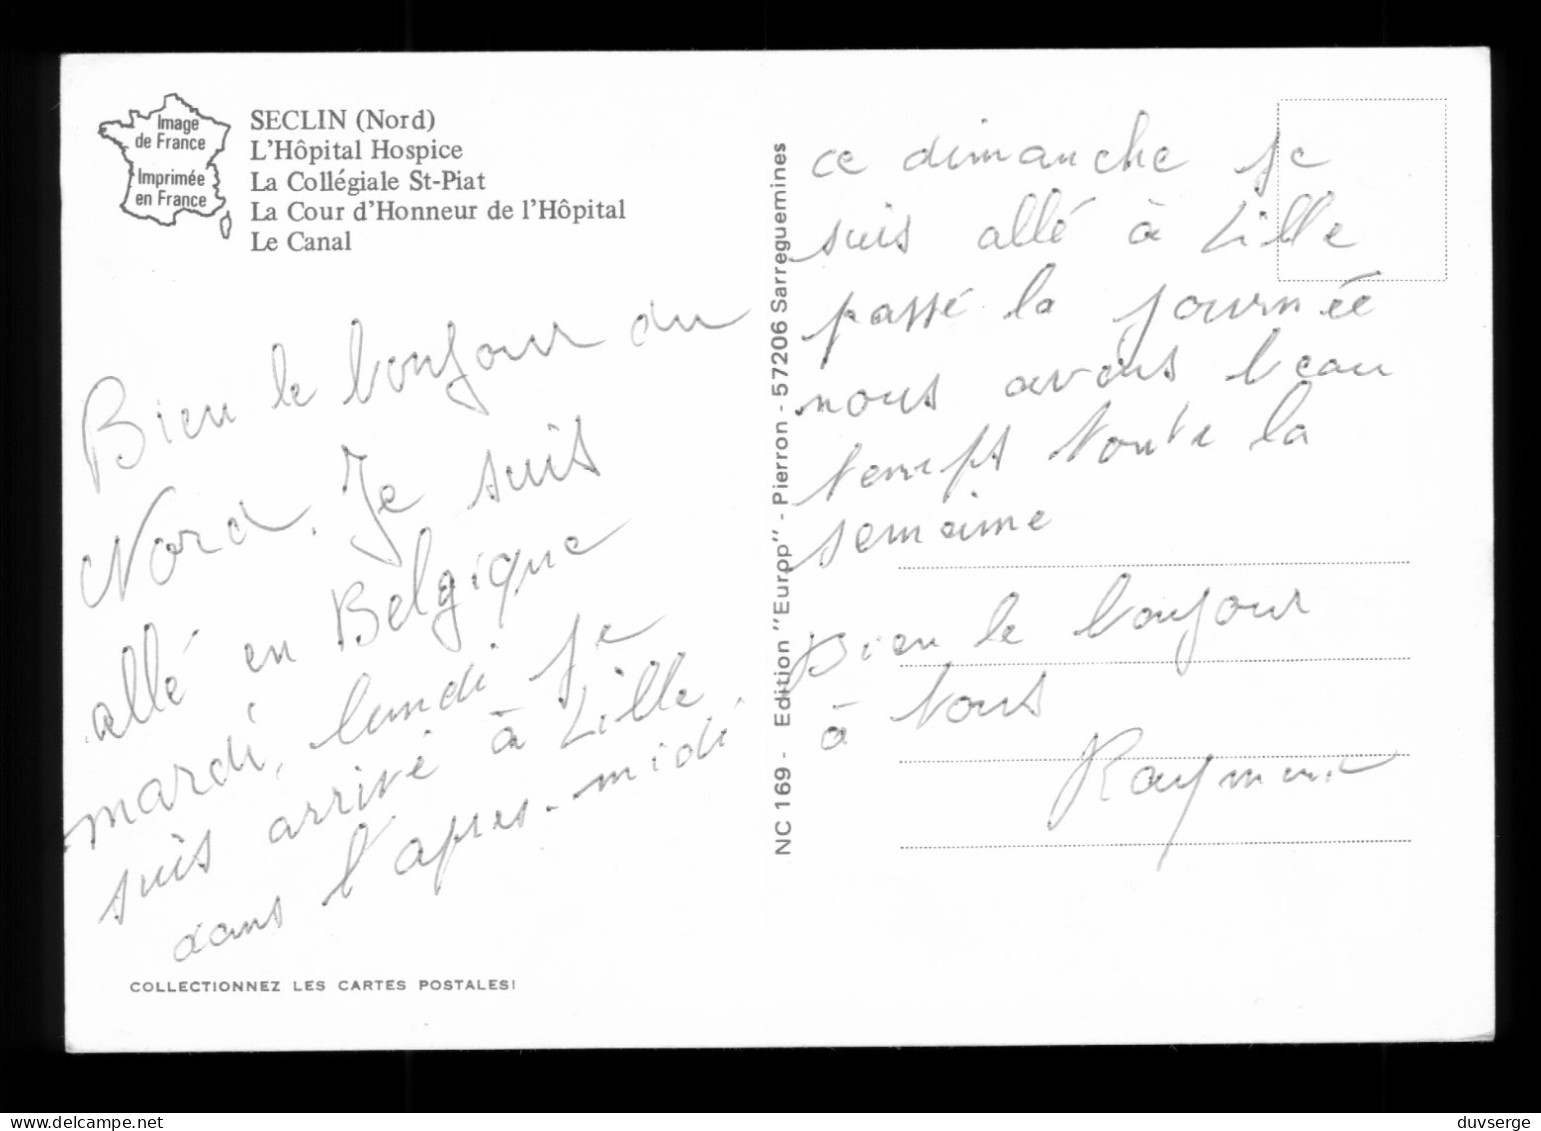 Image
de France
Imprimée
en France
SECLIN (Nord)
L'Hôpital Hospice
La Collégiale St-Piat
La Cour d'Honneur de l'Hôpital
Le Canal
Bien le bonjour du
Nord. Je suis
allé en Belgique
mardi, lundi je
suis arrivé à Lille
dans l'apres-midi.
COLLECTIONNEZ LES CARTES POSTALES!
NC 169 - Edition "Europp" - Pierron - 57206 Sarreguemines
ce dimanche je
suis allé à Lille
passé la journée
nous avons beau
temps toute la
semaine
Bien le bonjour
à tous
Raymond
duvserge